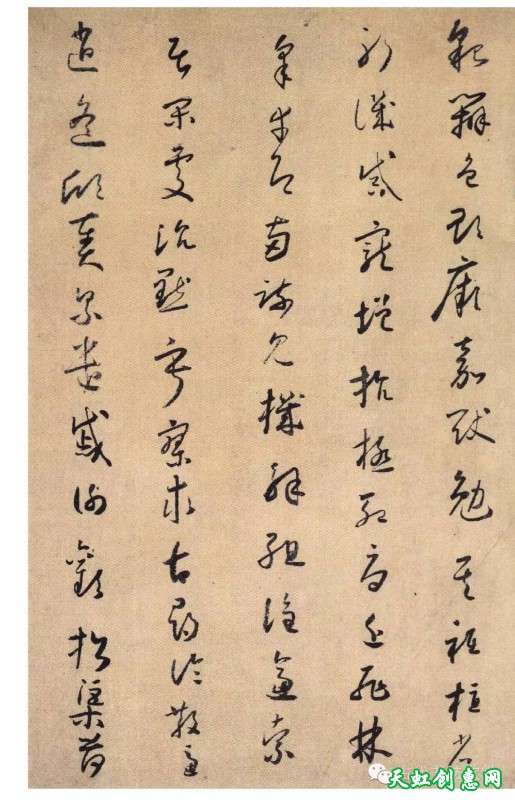 貌辯色貽厥嘉猷勉其祗植省
躬譏誡寵增抗極殆辱近恥林
皋幸即兩疏見機解組誰逼索
居閑處沉默寂寥求古尋論散慮
逍遙欣奏累遣慼謝歡招渠荷
天虹创惠网